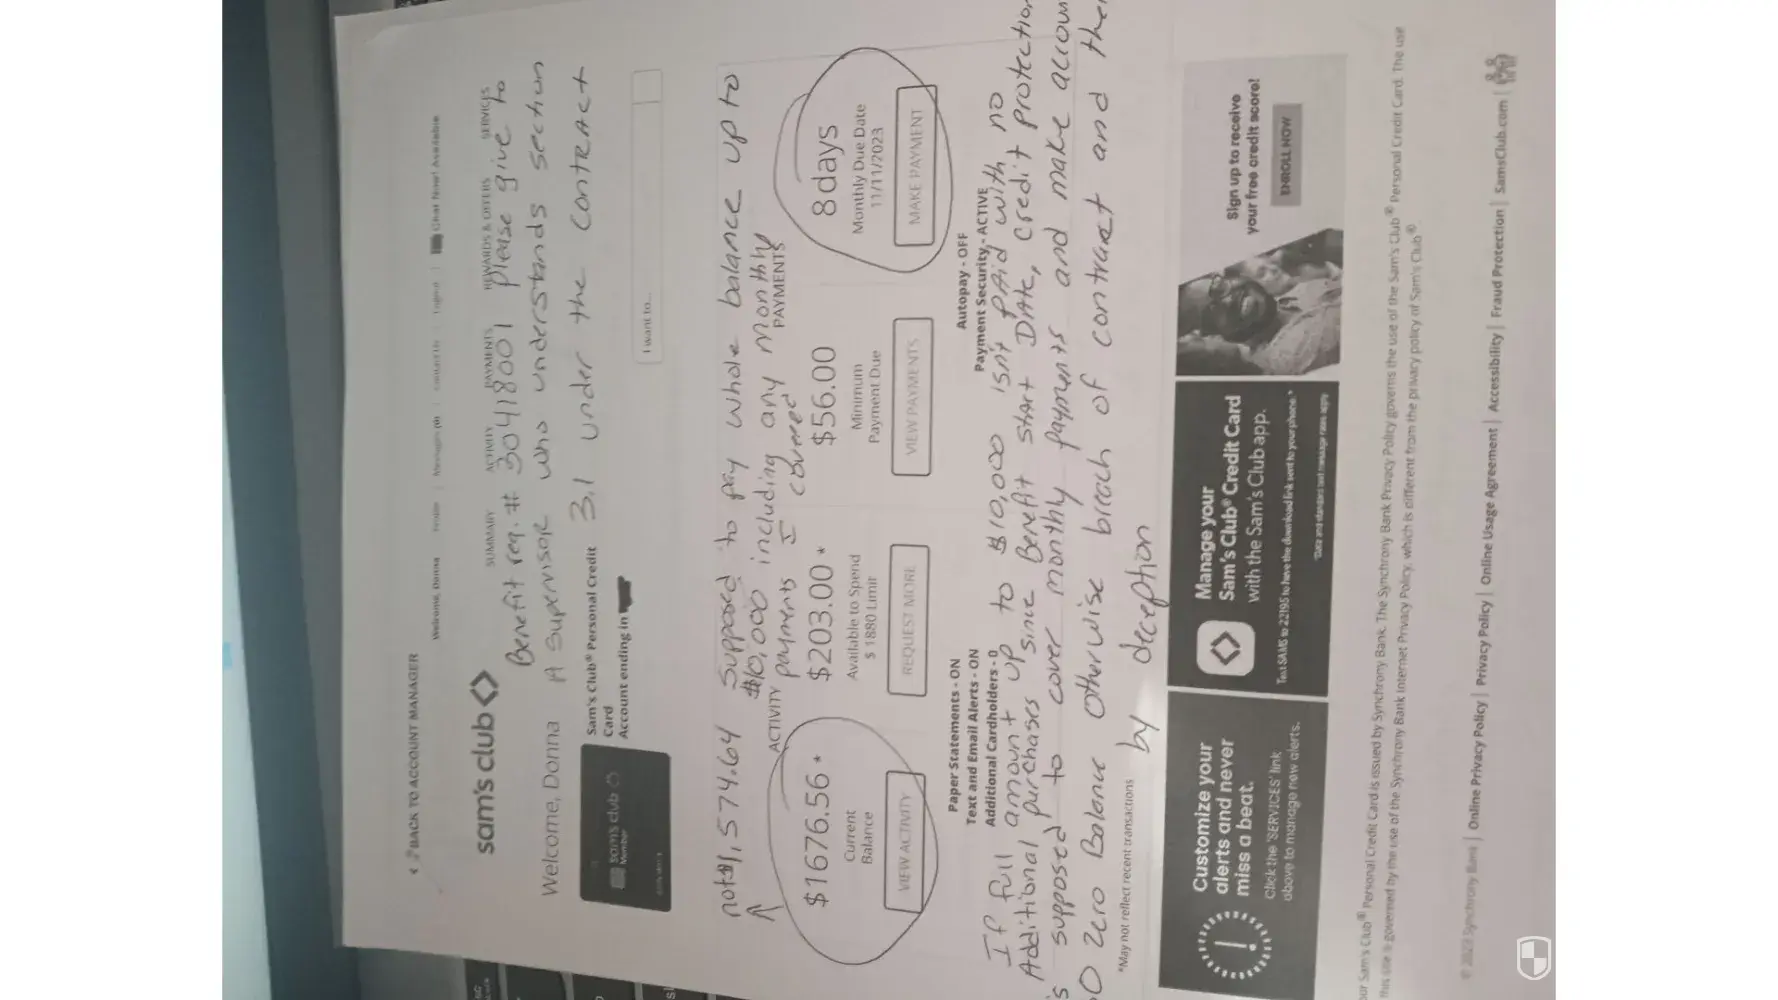 BACK TO ACCOUNT MANAGER
Welcome, Donna
Profile
Messages (0)
Contact Us
Logout
Chat Now! Available
sam's club
SUMMARY
ACTIVITY
PAYMENTS
REWARDS & OFFERS
SERVICES
Benefit req. # 30418001 please give to
A supervisor who understands section
3.1 under the contract
Welcome, Donna
Sam's Club® Personal Credit
Card
Account ending in
I want to...
sam's club
Member
not $1,574.64 Supposed to pay whole balance up to
$10,000 including any monthly
payments I covered
ACTIVITY
PAYMENTS
$1676.56*
Current
Balance
VIEW ACTIVITY
$203.00*
Available to Spend
$ 1880 Limit
REQUEST MORE
$56.00
Minimum
Payment Due
VIEW PAYMENTS
8 days
Monthly Due Date
11/11/2023
MAKE PAYMENT
Paper Statements - ON
Text and Email Alerts - ON
Additional Cardholders - 0
Autopay - OFF
Payment Security - ACTIVE
If full amount up to $10,000 isn't paid with no
Additional purchases since Benefit start Date, credit protection
is supposed to cover monthly payments and make account
Zero Balance otherwise breach of contract and
by deception
*May not reflect recent transactions
Customize your
alerts and never
miss a beat.
Click the 'SERVICES' link
above to manage new alerts.
Manage your
Sam's Club® Credit Card
with the Sam's Club app.
Text SAMS to 22195 to have the download link sent to your phone.*
*Data and standard text message rates apply
Sign up to receive
your free credit score!
ENROLL NOW
our Sam's Club® Personal Credit Card is issued by Synchrony Bank. The Synchrony Bank Privacy Policy governs the use of the Sam's Club® Personal Credit Card. The use
this site is governed by the use of the Synchrony Bank Internet Privacy Policy, which is different from the privacy policy of Sam's Club®
© 2023 Synchrony Bank | Online Privacy Policy | Privacy Policy | Online Usage Agreement | Accessibility | Fraud Protection | SamsClub.com |